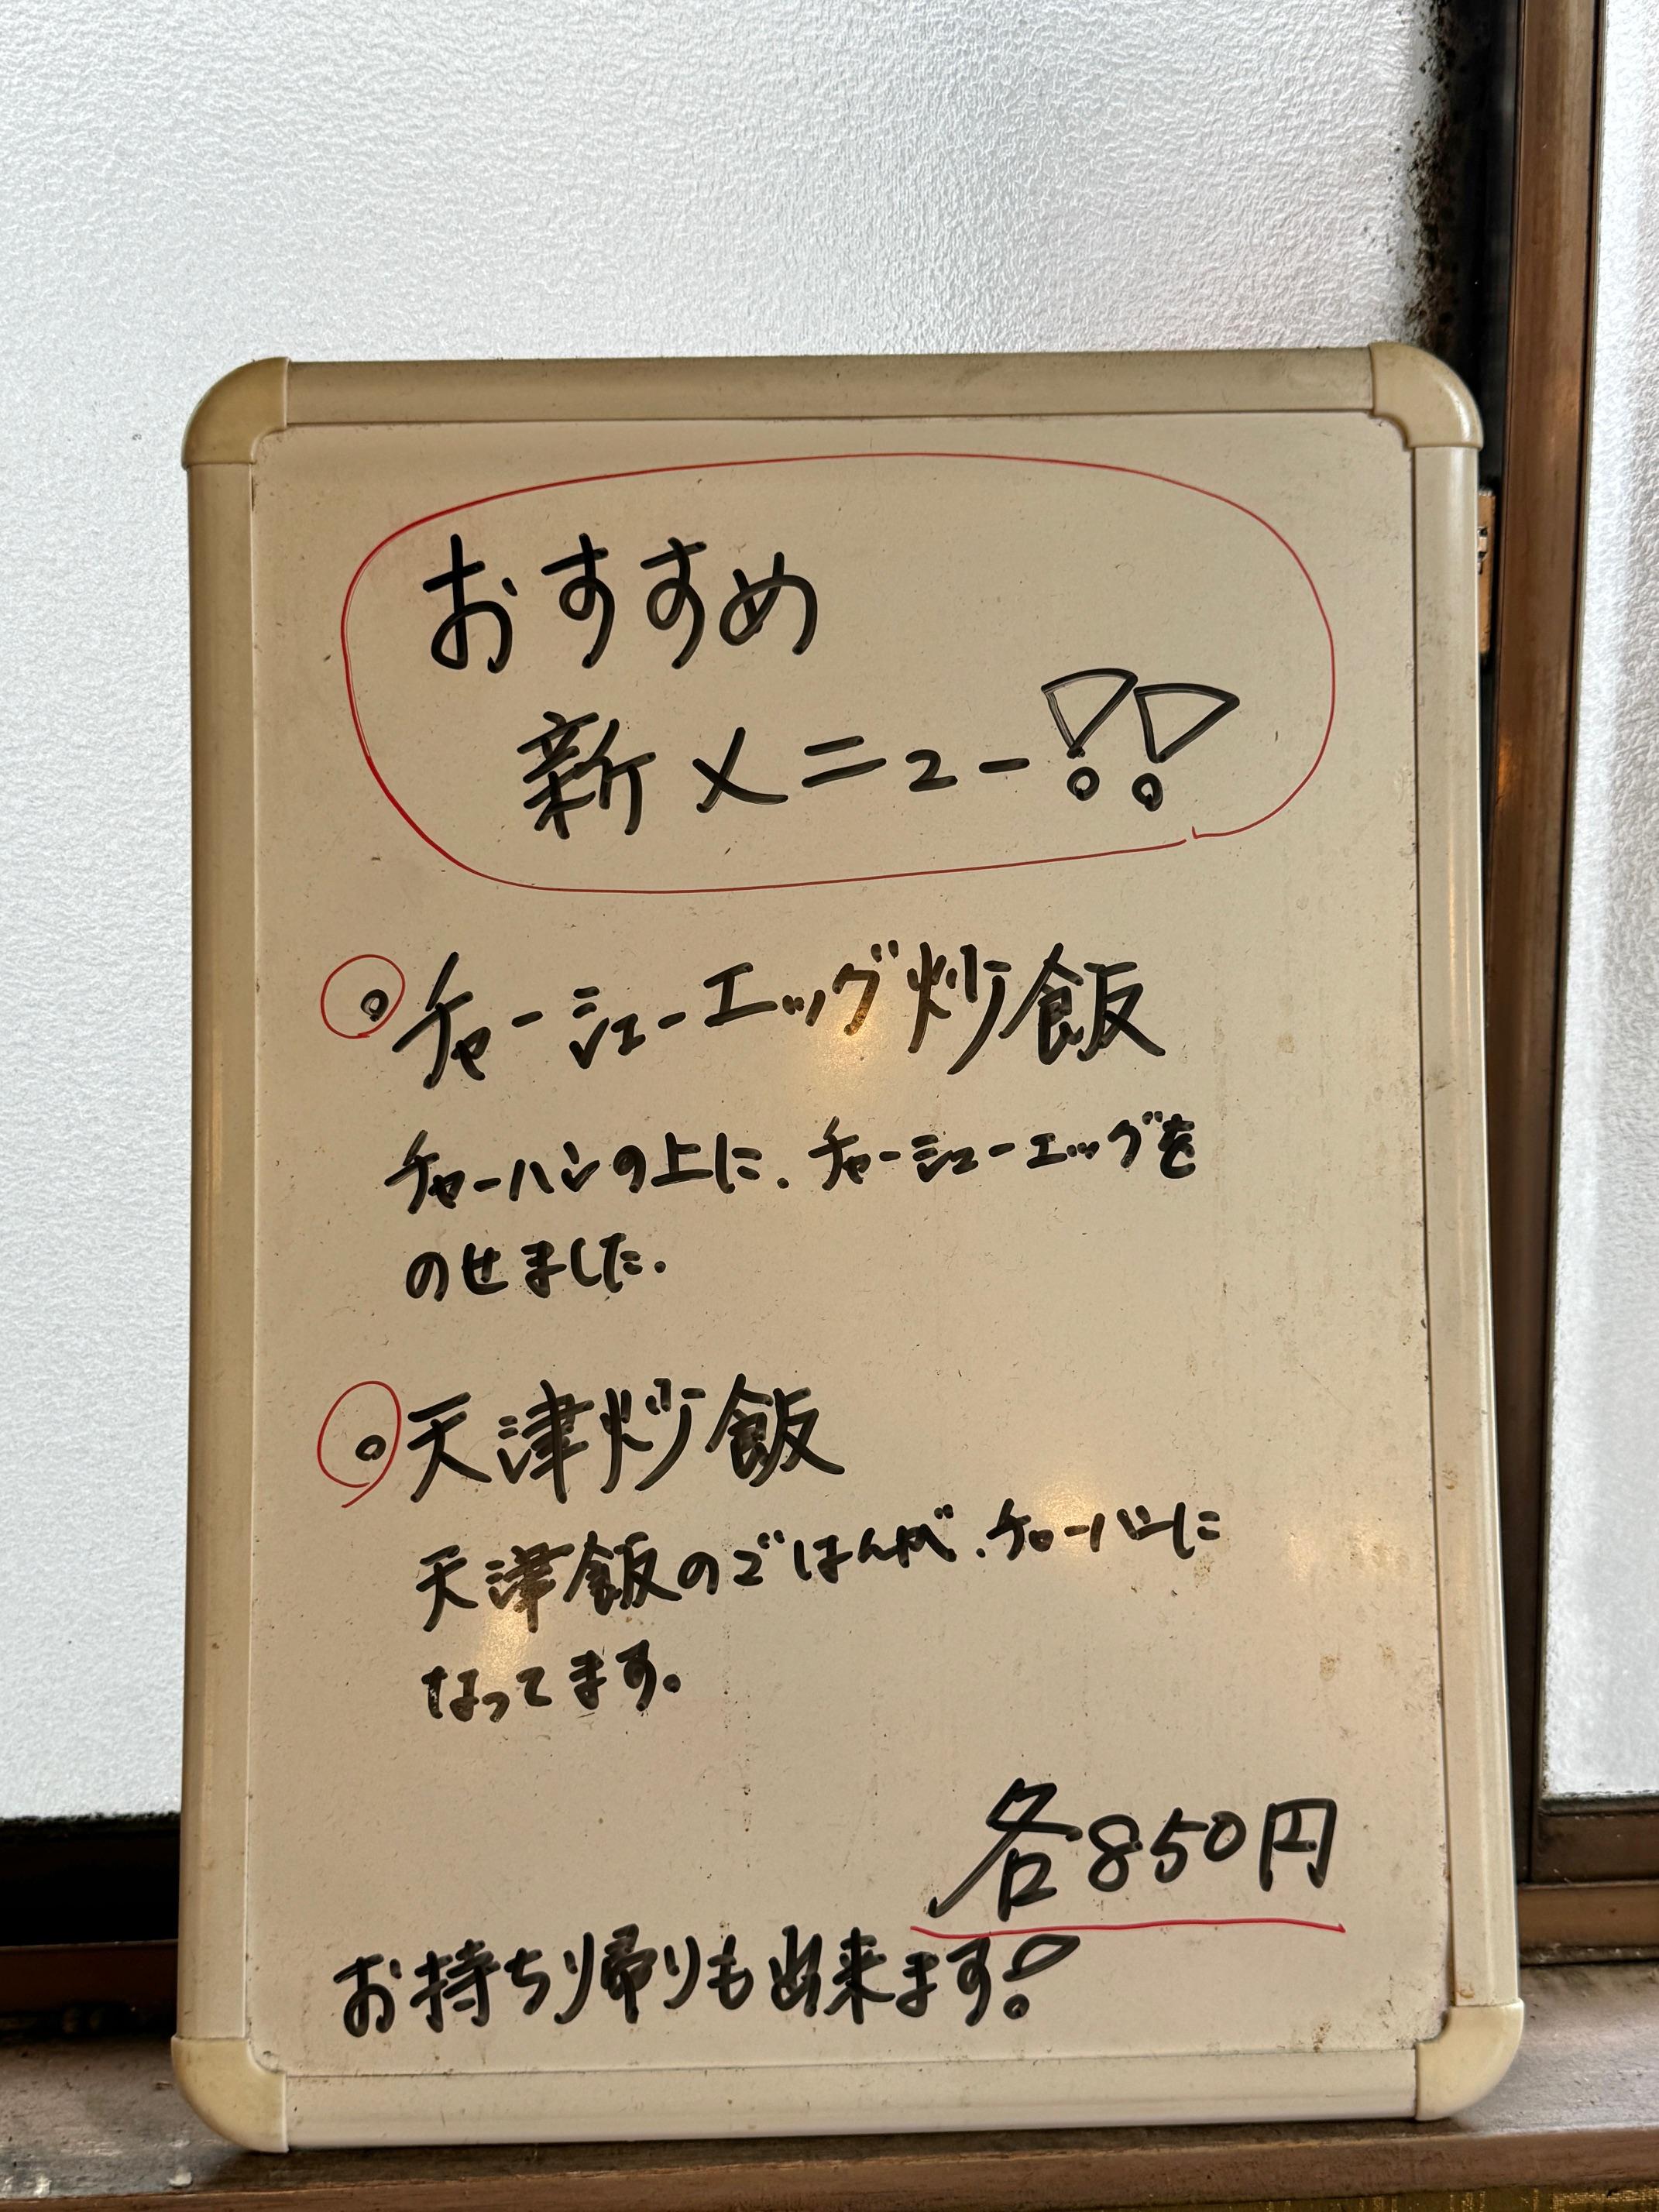 おすすめ
新メニュー!!
チャーシューエッグ炒飯
チャーハンの上に、チャーシューエッグを
のせました。
天津炒飯
天津飯のごはんが、チャーハンに
なってます。
各850円
お持ち帰りも出来ます!